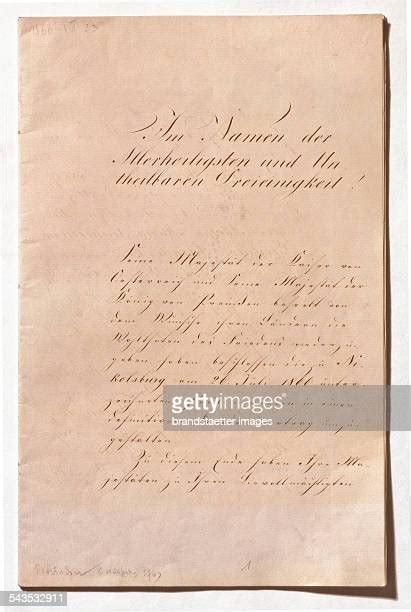 1866 VIII 23
Im Namen der
Allerheiligsten und Un
theilbaren Dreieinigkeit!
Seine Majestät der Kaiser von
Oesterreich und Seine Majestät der
König von Preußen beseelt von
dem Wunsche ihren Ländern die
Wohlthaten des Friedens wiederzu
geben haben beschlossen die zu Ni
kolsburg am 26 Juli 1866 unter
zeichneten in einen
definitiven umzu
gestalten
Zu diesem Ende haben Ihre Ma-
jestäten zu Ihren Bevollmächtigten
1
gettyimages
brandstaetter images
543532911